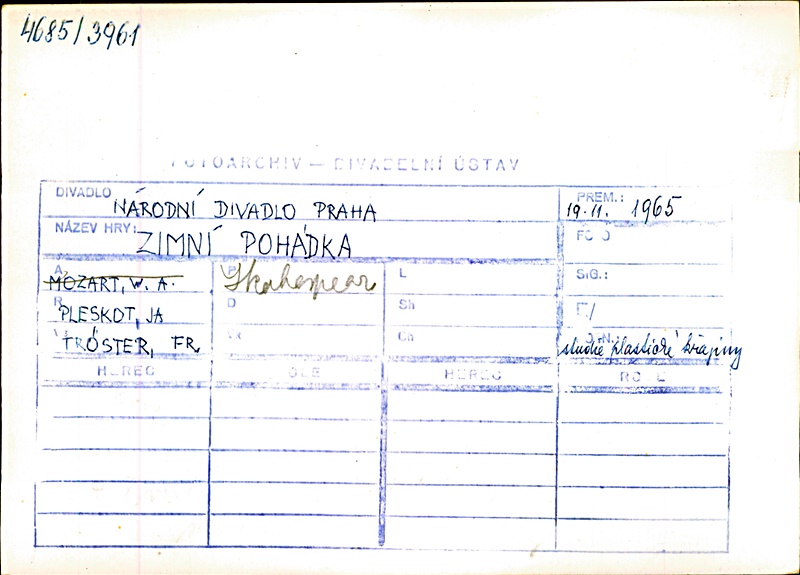 4685/3961
FOTOARCHIV — DIVADELNÍ ÚSTAV
DIVADLO NÁRODNÍ DIVADLO PRAHA
PREM.: 19.11. 1965
NÁZEV HRY: ZIMNÍ POHÁDKA
FOTO
A MOZART, W. A.
P Skahespear
L
SIG.:
R PLESKOT, JA
D
Sh
E/
V TRÖSTER, FR.
Ch
studie plastické krajiny
HEREC
ROLE
HEREC
ROLE